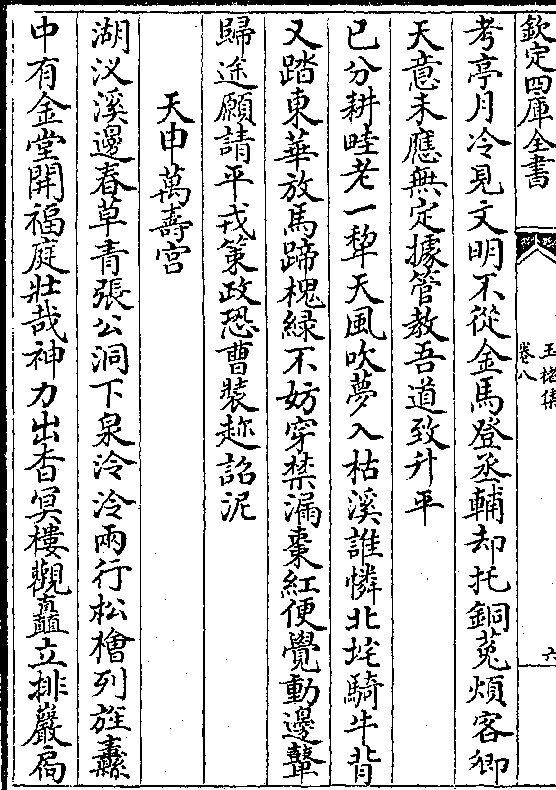 欽定四庫全書
玉楮集
卷八
六
考亭月冷見文明不從金馬登丞輔却托銅菟煩客卿
天意未應無定據管教吾道致升平
已分耕畦老一犂天風吹夢入枯溪誰憐北垞騎牛背
又踏東華放馬蹄槐緑不妨穿禁漏棗紅便覺動邊鼙
歸途願請平戎策政恐曹裝趂詔泥
天申萬壽宫
湖㳇溪邊春草青張公洞下泉泠泠兩行松檜列旌纛
中有金堂開福庭壯哉神力出杳冥樓觀矗立排巖扃